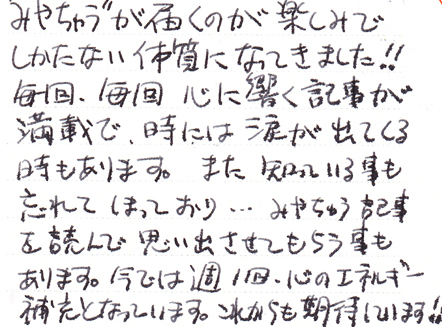 みやちゅう"が届くのが楽しみで
しかたない体質になってきました!!
毎回、毎回 心に響く記事が
満載で、時には涙が出てくる
時もあります。また 知っている事も
忘れてしまっており… みやちゅう記事
を読んで 思い出させてもらう事も
あります。今では週1回、心のエネルギー
補充となっています。これからも期待しています!!